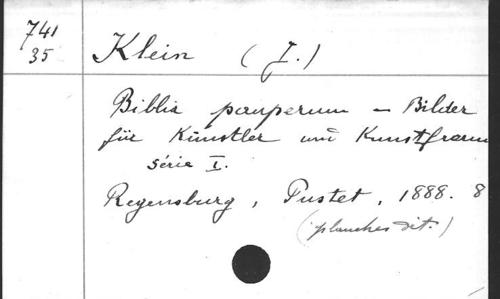 741
35
Klein (I.)
Biblia pauperum – Bilder
für Künstler und Kunstfreun
série I.
Regensburg, Pustet, 1888. 8
(planches dit.)